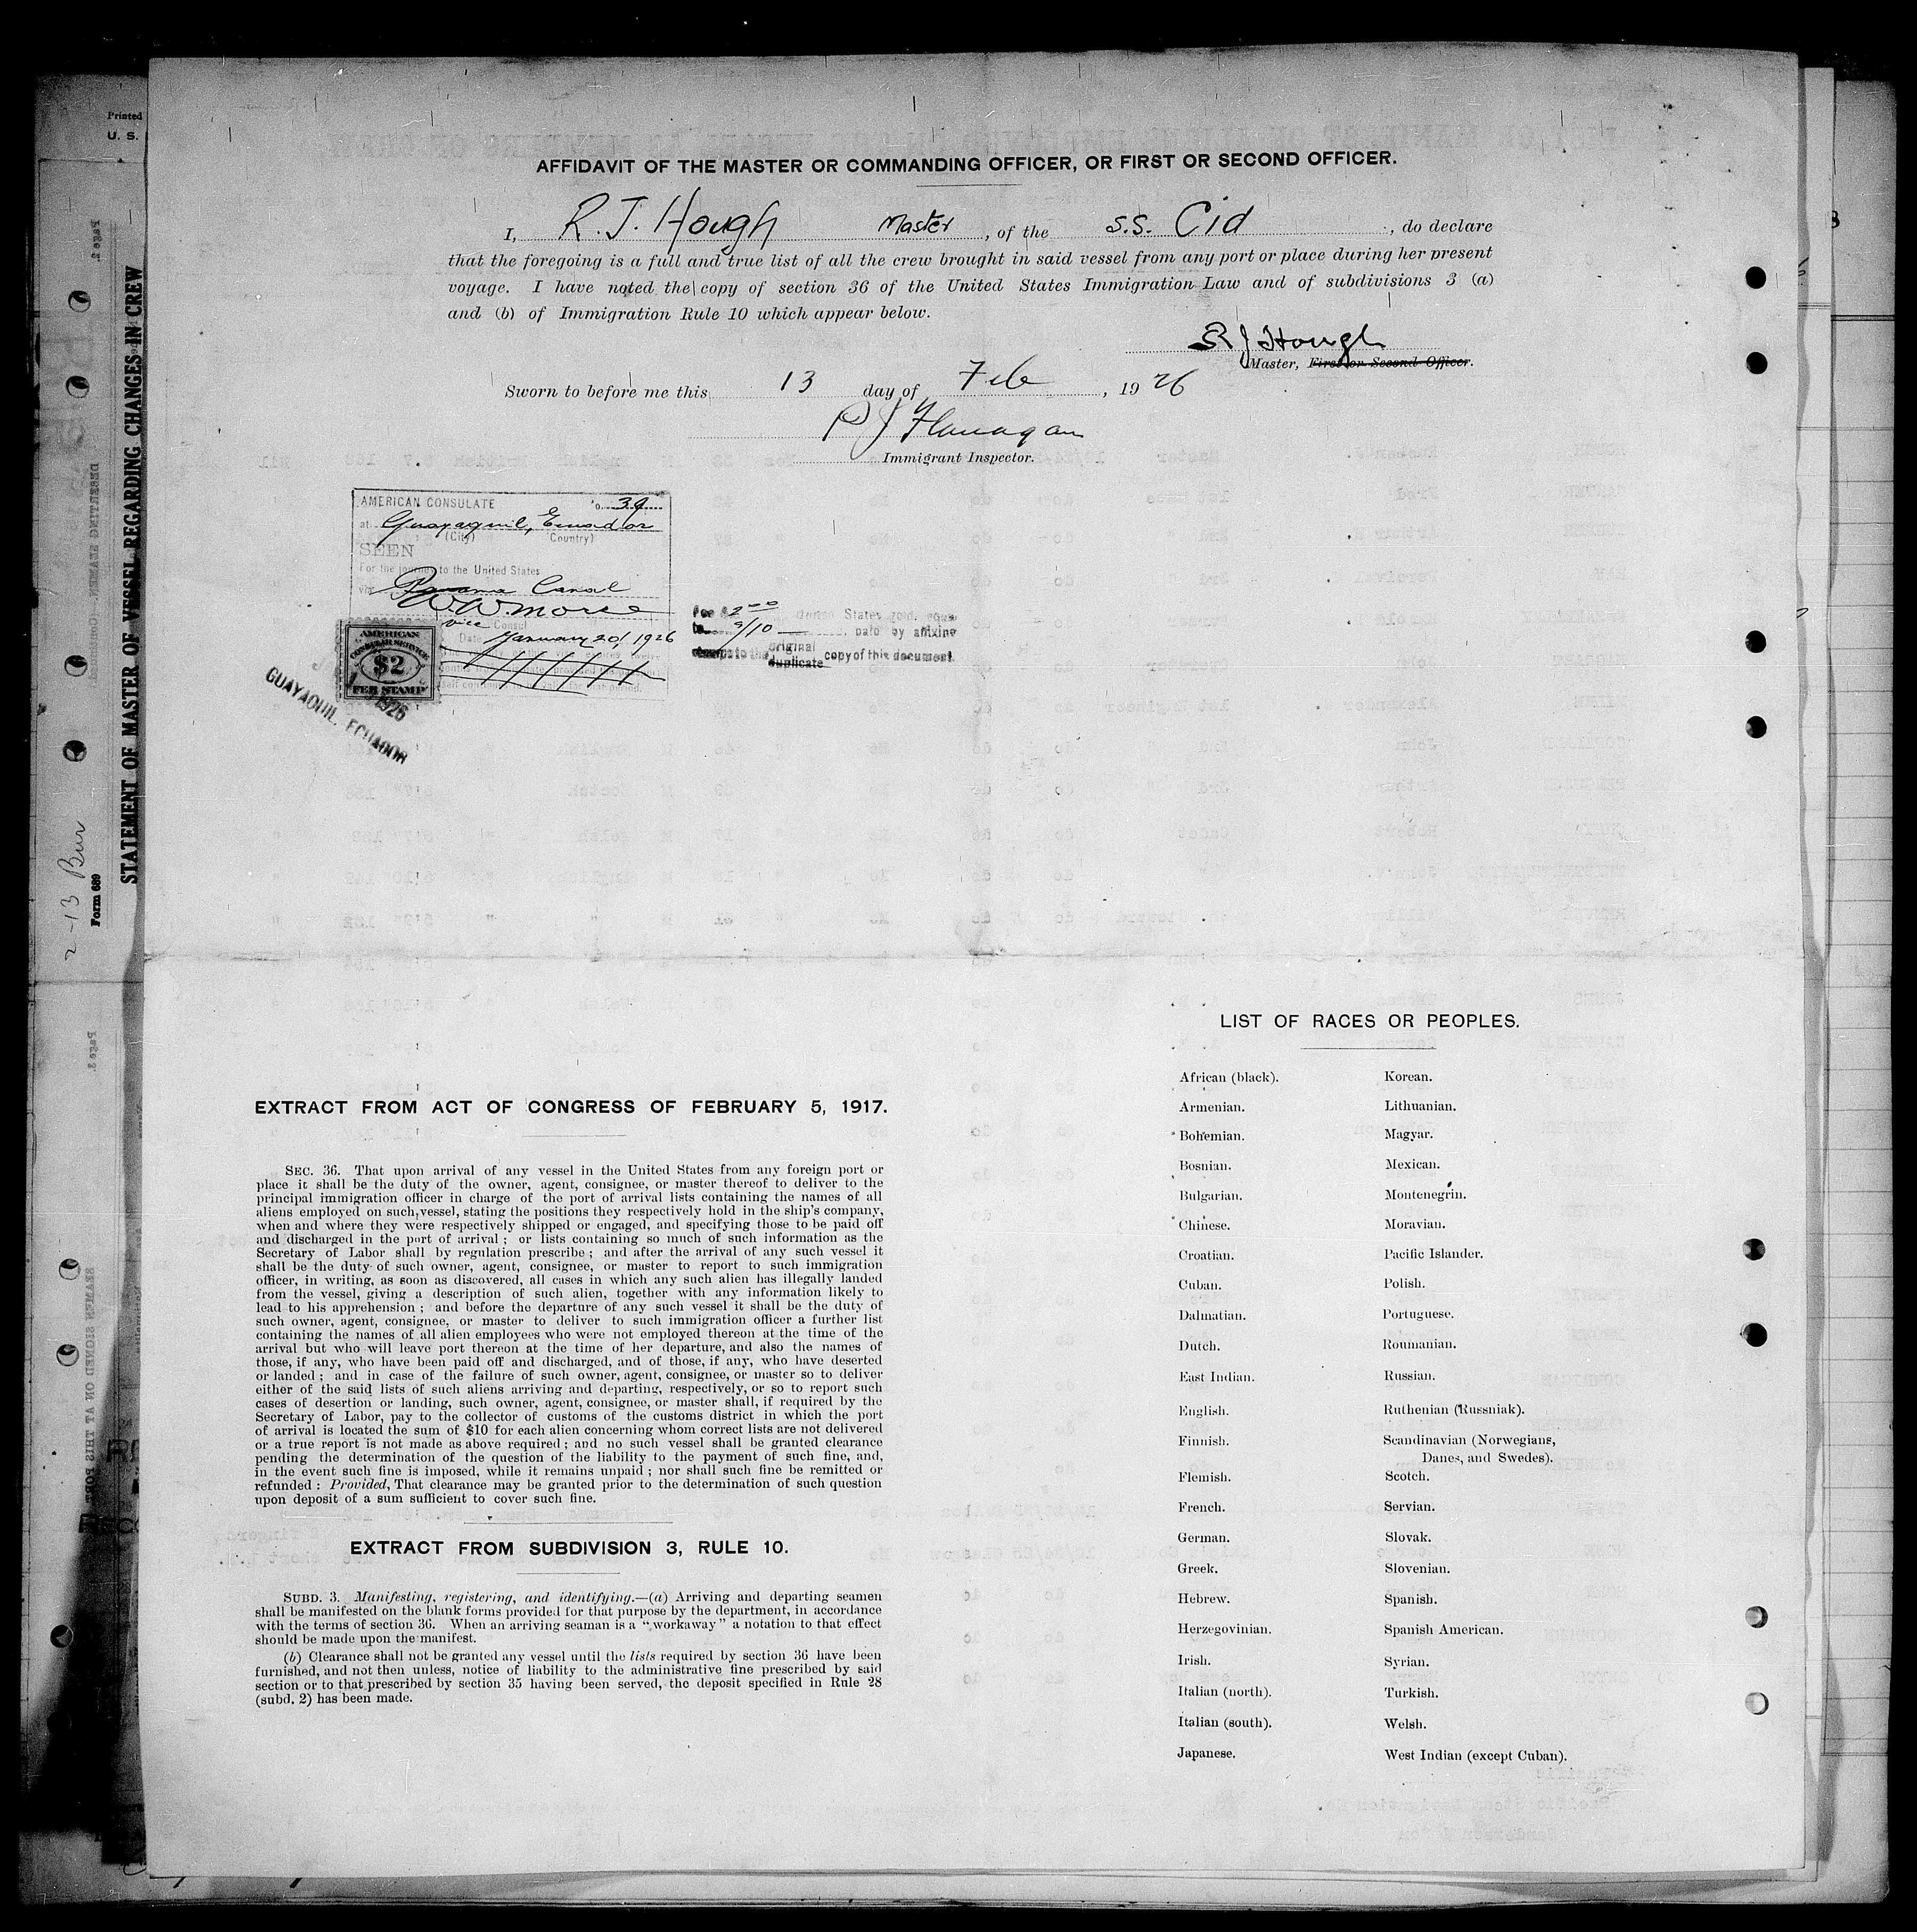 Printed
U. S.
STATEMENT OF MASTER OF VESSEL REGARDING CHANGES IN CREW
Form 689
2-13 Bur
AFFIDAVIT OF THE MASTER OR COMMANDING OFFICER, OR FIRST OR SECOND OFFICER.
I, R. J. Hough Master, of the s.s. Cid, do declare
that the foregoing is a full and true list of all the crew brought in said vessel from any port or place during her present
voyage. I have noted the copy of section 36 of the United States Immigration Law and of subdivisions 3 (a)
and (b) of Immigration Rule 10 which appear below.
R J Hough
Master, First or Second Officer.
Sworn to before me this 13 day of Feb, 1926
P J Flanagan
Immigrant Inspector.
AMERICAN CONSULATE No. 39
at Guayaquil, Ecuador
(City) (Country)
SEEN
For the journey to the United States
via Panama Canal
W.W. Morse
vice Consul
Date January 20, 1926
AMERICAN
CONSULAR SERVICE
$2
FEE STAMP
1926
GUAYAQUIL, ECUADOR
Fee $2.00 United States gold, equal
to 9/10 paid by affixing
stamps to the original
duplicate copy of this document.
LIST OF RACES OR PEOPLES.
African (black). Korean.
Armenian. Lithuanian.
Bohemian. Magyar.
Bosnian. Mexican.
Bulgarian. Montenegrin.
Chinese. Moravian.
Croatian. Pacific Islander.
Cuban. Polish.
Dalmatian. Portuguese.
Dutch. Roumanian.
East Indian. Russian.
English. Ruthenian (Russniak).
Finnish. Scandinavian (Norwegians,
Danes, and Swedes).
Flemish. Scotch.
French. Servian.
German. Slovak.
Greek. Slovenian.
Hebrew. Spanish.
Herzegovinian. Spanish American.
Irish. Syrian.
Italian (north). Turkish.
Italian (south). Welsh.
Japanese. West Indian (except Cuban).
EXTRACT FROM ACT OF CONGRESS OF FEBRUARY 5, 1917.
SEC. 36. That upon arrival of any vessel in the United States from any foreign port or
place it shall be the duty of the owner, agent, consignee, or master thereof to deliver to the
principal immigration officer in charge of the port of arrival lists containing the names of all
aliens employed on such vessel, stating the positions they respectively hold in the ship's company,
when and where they were respectively shipped or engaged, and specifying those to be paid off
and discharged in the port of arrival; or lists containing so much of such information as the
Secretary of Labor shall by regulation prescribe; and after the arrival of any such vessel it
shall be the duty of such owner, agent, consignee, or master to report to such immigration
officer, in writing, as soon as discovered, all cases in which any such alien has illegally landed
from the vessel, giving a description of such alien, together with any information likely to
lead to his apprehension; and before the departure of any such vessel it shall be the duty of
such owner, agent, consignee, or master to deliver to such immigration officer a further list
containing the names of all alien employees who were not employed thereon at the time of the
arrival but who will leave port thereon at the time of her departure, and also the names of
those, if any, who have been paid off and discharged, and of those, if any, who have deserted
or landed; and in case of the failure of such owner, agent, consignee, or master so to deliver
either of the said lists of such aliens arriving and departing, respectively, or so to report such
cases of desertion or landing, such owner, agent, consignee, or master shall, if required by the
Secretary of Labor, pay to the collector of customs of the customs district in which the port
of arrival is located the sum of $10 for each alien concerning whom correct lists are not delivered
or a true report is not made as above required; and no such vessel shall be granted clearance
pending the determination of the question of the liability to the payment of such fine, and,
in the event such fine is imposed, while it remains unpaid; nor shall such fine be remitted or
refunded: Provided, That clearance may be granted prior to the determination of such question
upon deposit of a sum sufficient to cover such fine.
EXTRACT FROM SUBDIVISION 3, RULE 10.
SUBD. 3. Manifesting, registering, and identifying.—(a) Arriving and departing seamen
shall be manifested on the blank forms provided for that purpose by the department, in accordance
with the terms of section 36. When an arriving seaman is a "workaway" a notation to that effect
should be made upon the manifest.
(b) Clearance shall not be granted any vessel until the lists required by section 36 have been
furnished, and not then unless, notice of liability to the administrative fine prescribed by said
section or to that prescribed by section 35 having been served, the deposit specified in Rule 28
(subd. 2) has been made.